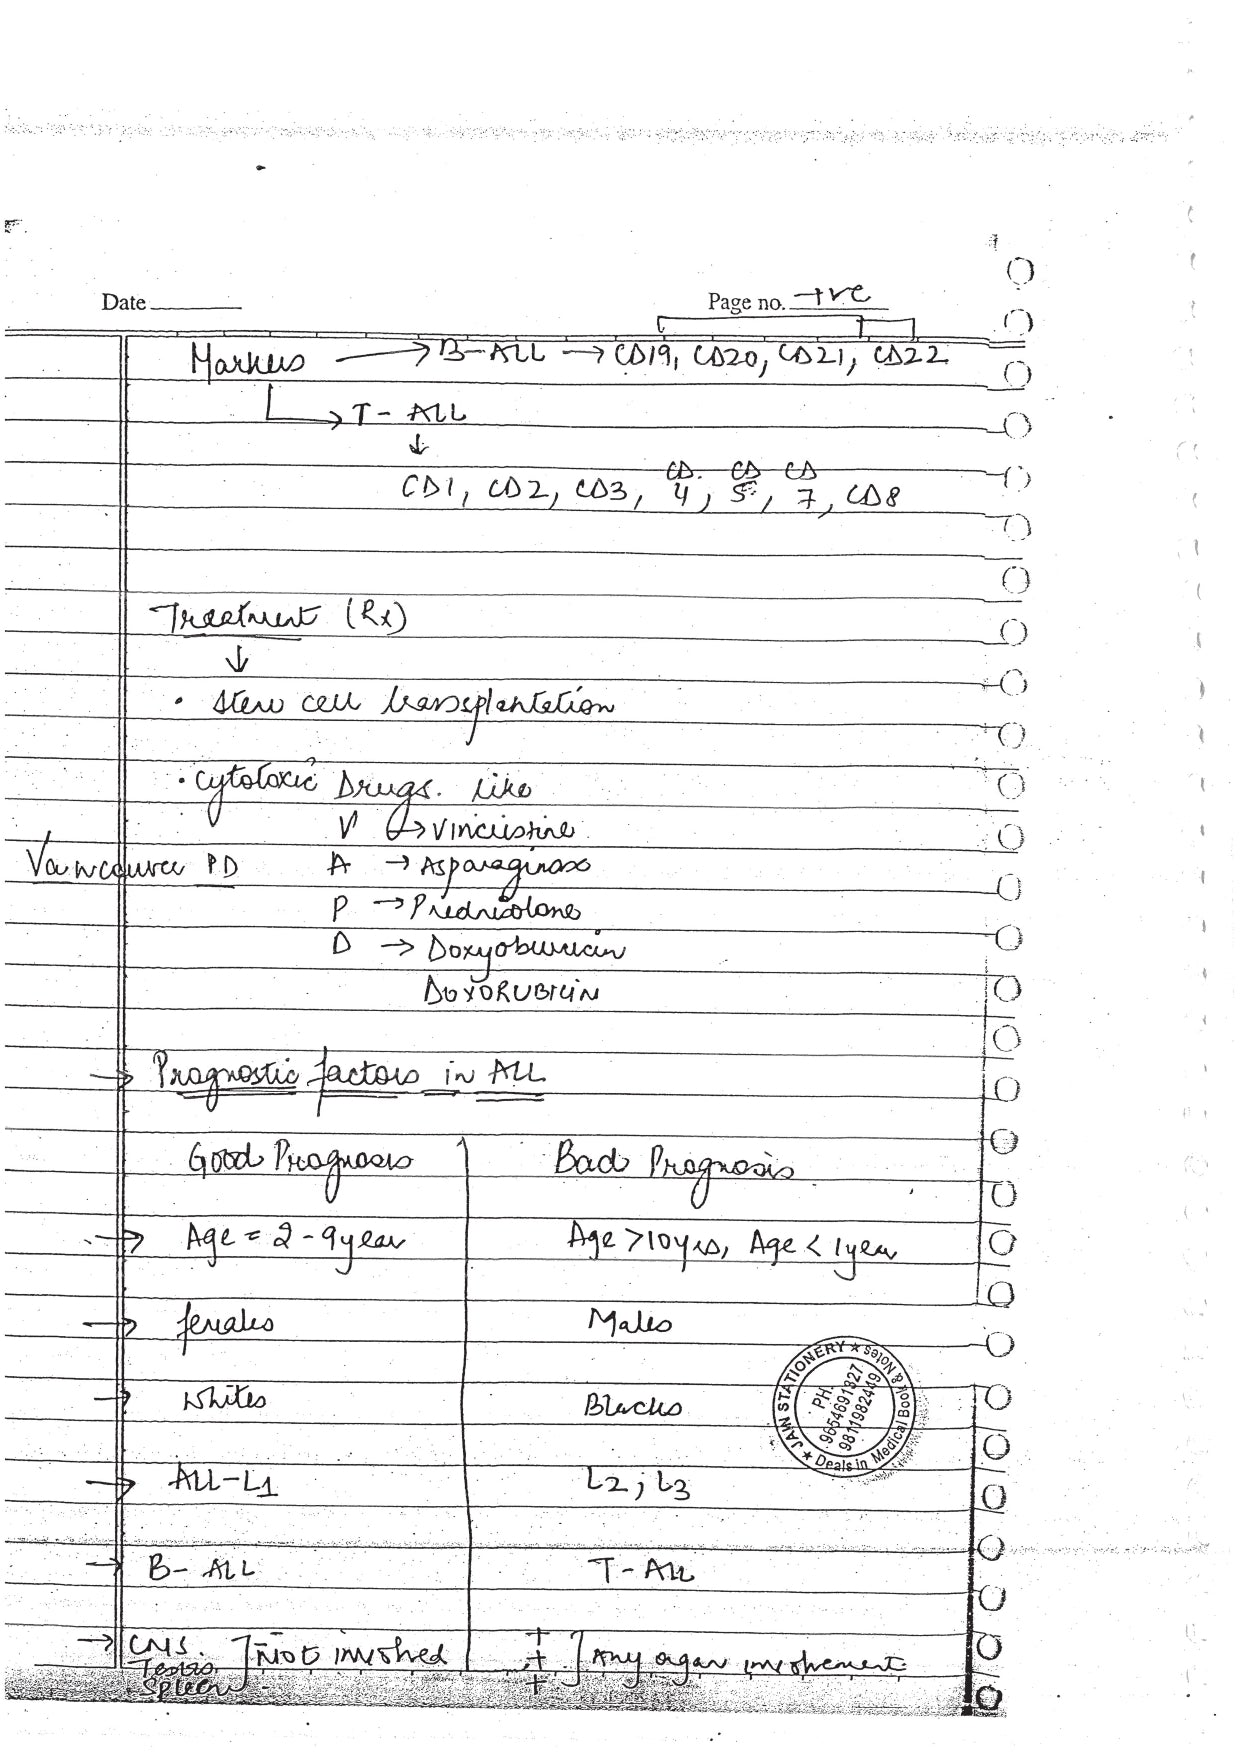 Date
Page no. +ve
Markers → B-ALL → CD19, CD20, CD21, CD22
→ T-ALL
↓
CD1, CD2, CD3, CD4, CD5, CD7, CD8
Treatment (Rx)
↓
• Stem cell transplantation
• cytotoxic Drugs. like
V → Vincristine
Vancouver PD A → Asparaginase
P → Prednisolone
D → Doxyoburicin
DOXORUBICIN
→ Prognostic factors in ALL
Good Prognosis Bad Prognosis
→ Age = 2 - 9 year Age > 10 yrs, Age < 1 year
→ females Males
→ whites Blacks
JAIN STATIONERY ★ Book & Notes
PH.
9654691327
9811982449
★ Deals in Medical
→ ALL-L1 L2, L3
→ B-ALL T-ALL
→ CNS. ] Not involved + ] Any organ involvement
Testis +
Spleen +